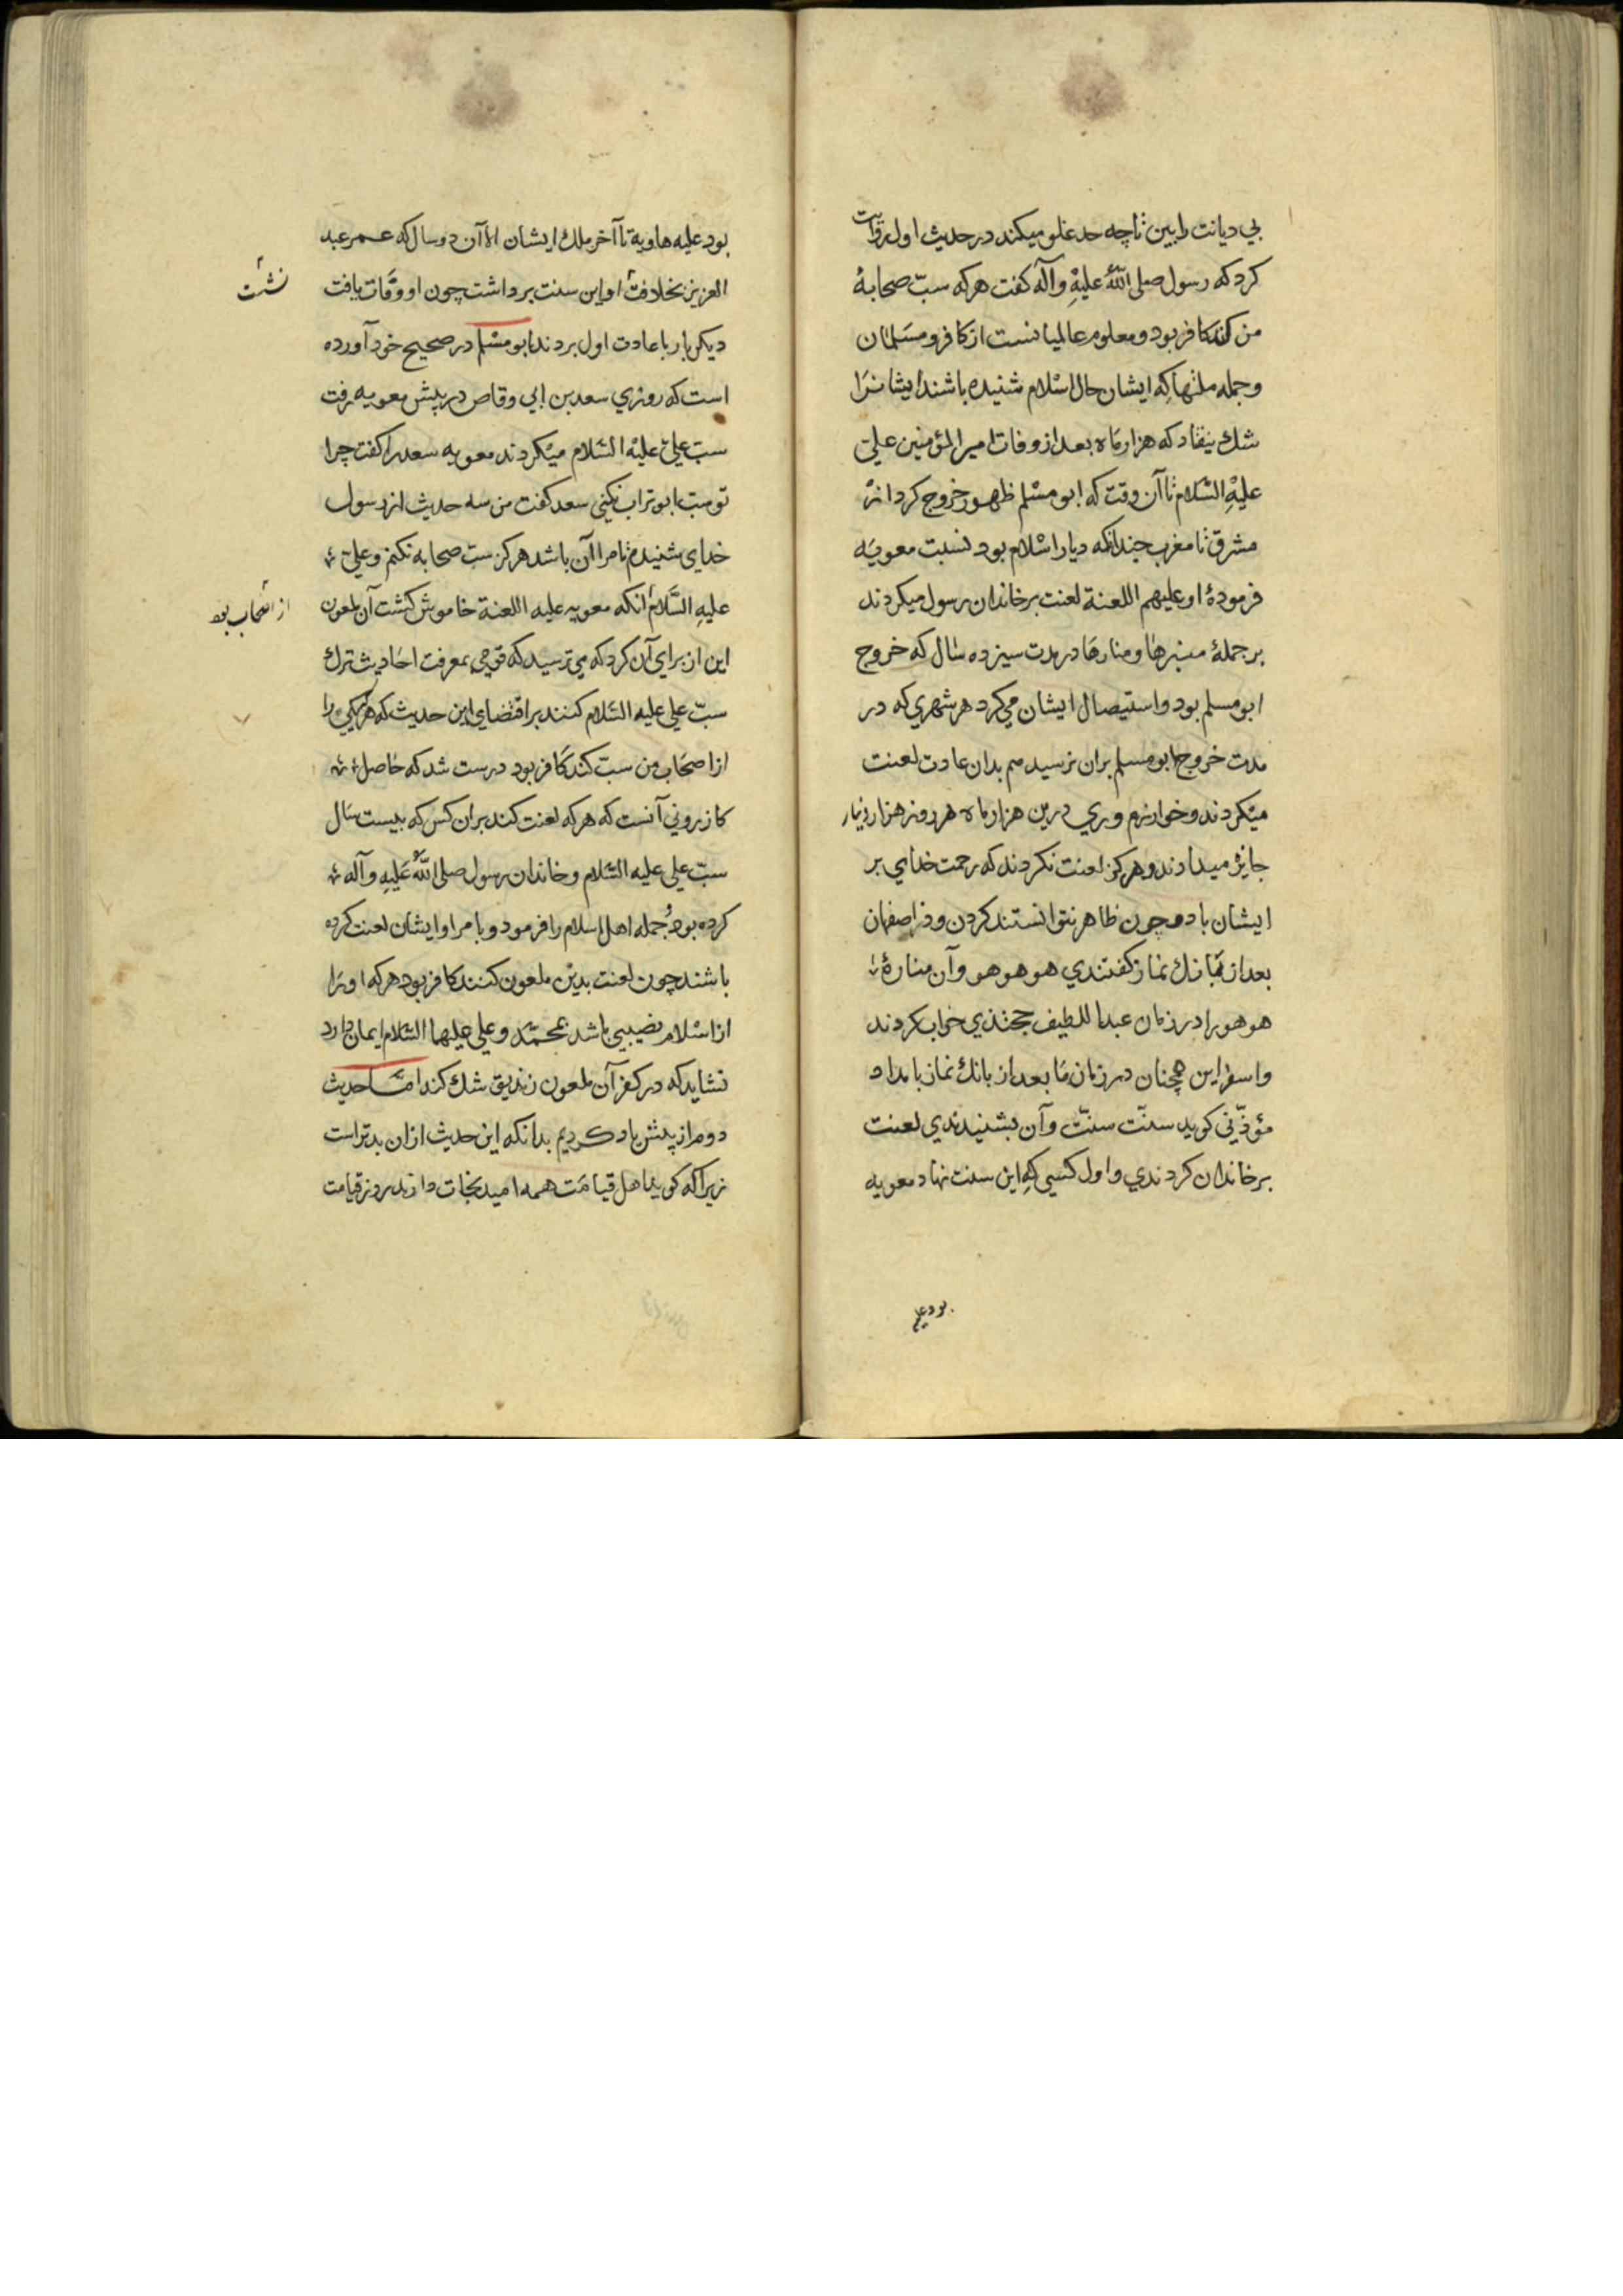 بي ديانت را ببين تا چه حد غلو ميكند در حديث اول روايت
كرد كه رسول صلى الله عليه وآله كفت هركه سبّ صحابهٔ
من كند كافر بود ومعلوم عالميانست از كافر ومسلمان
وجمله ملتها كه ايشان حال اسلام شنيده باشند ايشانرا
شك نيفتاد كه هزار ماه بعد از وفات امير المؤمنين علي
عليه السلام تا آن وقت كه ابو مسلم ظهور خروج كرد از
مشرق تا مغرب چندانكه ديار اسلام بود نسبت معويه
فرمودهٔ او عليهم اللعنة لعنت بر خاندان رسول ميكردند
بر جملهٔ منبرها ومنارها در مدت سيزده سال كه خروج
ابو مسلم بود واستيصال ايشان مي كرد هر شهري كه در
مدت خروج ابو مسلم بران نرسيد هم بدان عادت لعنت
ميكردند وخوارزم وري درين هزار ماه هر روز هزار دينار
جايز ميدادند وهركز لعنت نكردند كه رحمت خداي بر
ايشان باد وچون ظاهر نتوانستند كردن ودر اصفهان
بعد از بانك نماز كفتندي هو هو هو وآن منارهٔ
هو هو را در زمان عبد اللطيف خجندي خراب كردند
واسفراين همچنان در زمان ما بعد از بانك نماز بامداد
مؤذّني كويد سنّت سنّت وآن بشنيدندي لعنت
بر خاندان كردندي واول كسي كه اين سنت نهاد معويه
بود علي
بود عليه هاويه تا آخر ملك ايشان الا آن دو سال كه عمر عبد
العزيز بخلافت او اين سنت برداشت چون او وفات يافت
نشست
ديكر بار با عادت اول بردند ابو مسلم در صحيح خود آورده
است كه روزي سعد بن ابي وقاص در پيش معويه رفت
سبّ علي عليه السلام ميكردند معويه سعد را كفت چرا
تو سب ابو تراب نكني سعد كفت من سه حديث از رسول
خداى شنيدم تا مرا آن باشد هركز سبّ صحابه نكنم وعلي
عليه السلام آنكه معويه عليه اللعنة خاموش كشت آن ملعون
از اصحاب بود
اين از براي آن كرد كه مي ترسيد كه قومي بمعرفت احاديث ترك
سبّ علي عليه السلام كنند بر اقتضاي اين حديث كه هركه يكي را
از اصحاب من سبّ كند كافر بود درست شد كه حاصل
كازروني آنست كه هركه لعنت كند بران كس كه بيست سال
سبّ علي عليه السلام وخاندان رسول صلى الله عليه وآله
كرده بود وجمله اهل اسلام را فرمود وبامر او ايشان لعنت كرده
باشند چون لعنت بدين ملعون كنند كافر بود هركه او را
از اسلام نصيبي باشد بمحمّد وعلي عليهما السلام ايمان دارد
نشايد كه در كفر آن ملعون زنديق شك كند امّا حديث
دوم از پيش ياد كرديم بدانكه اين حديث ازان بدتر است
زيرا كه كويد اهل قيامت همه اميد نجات دارند روز قيامت